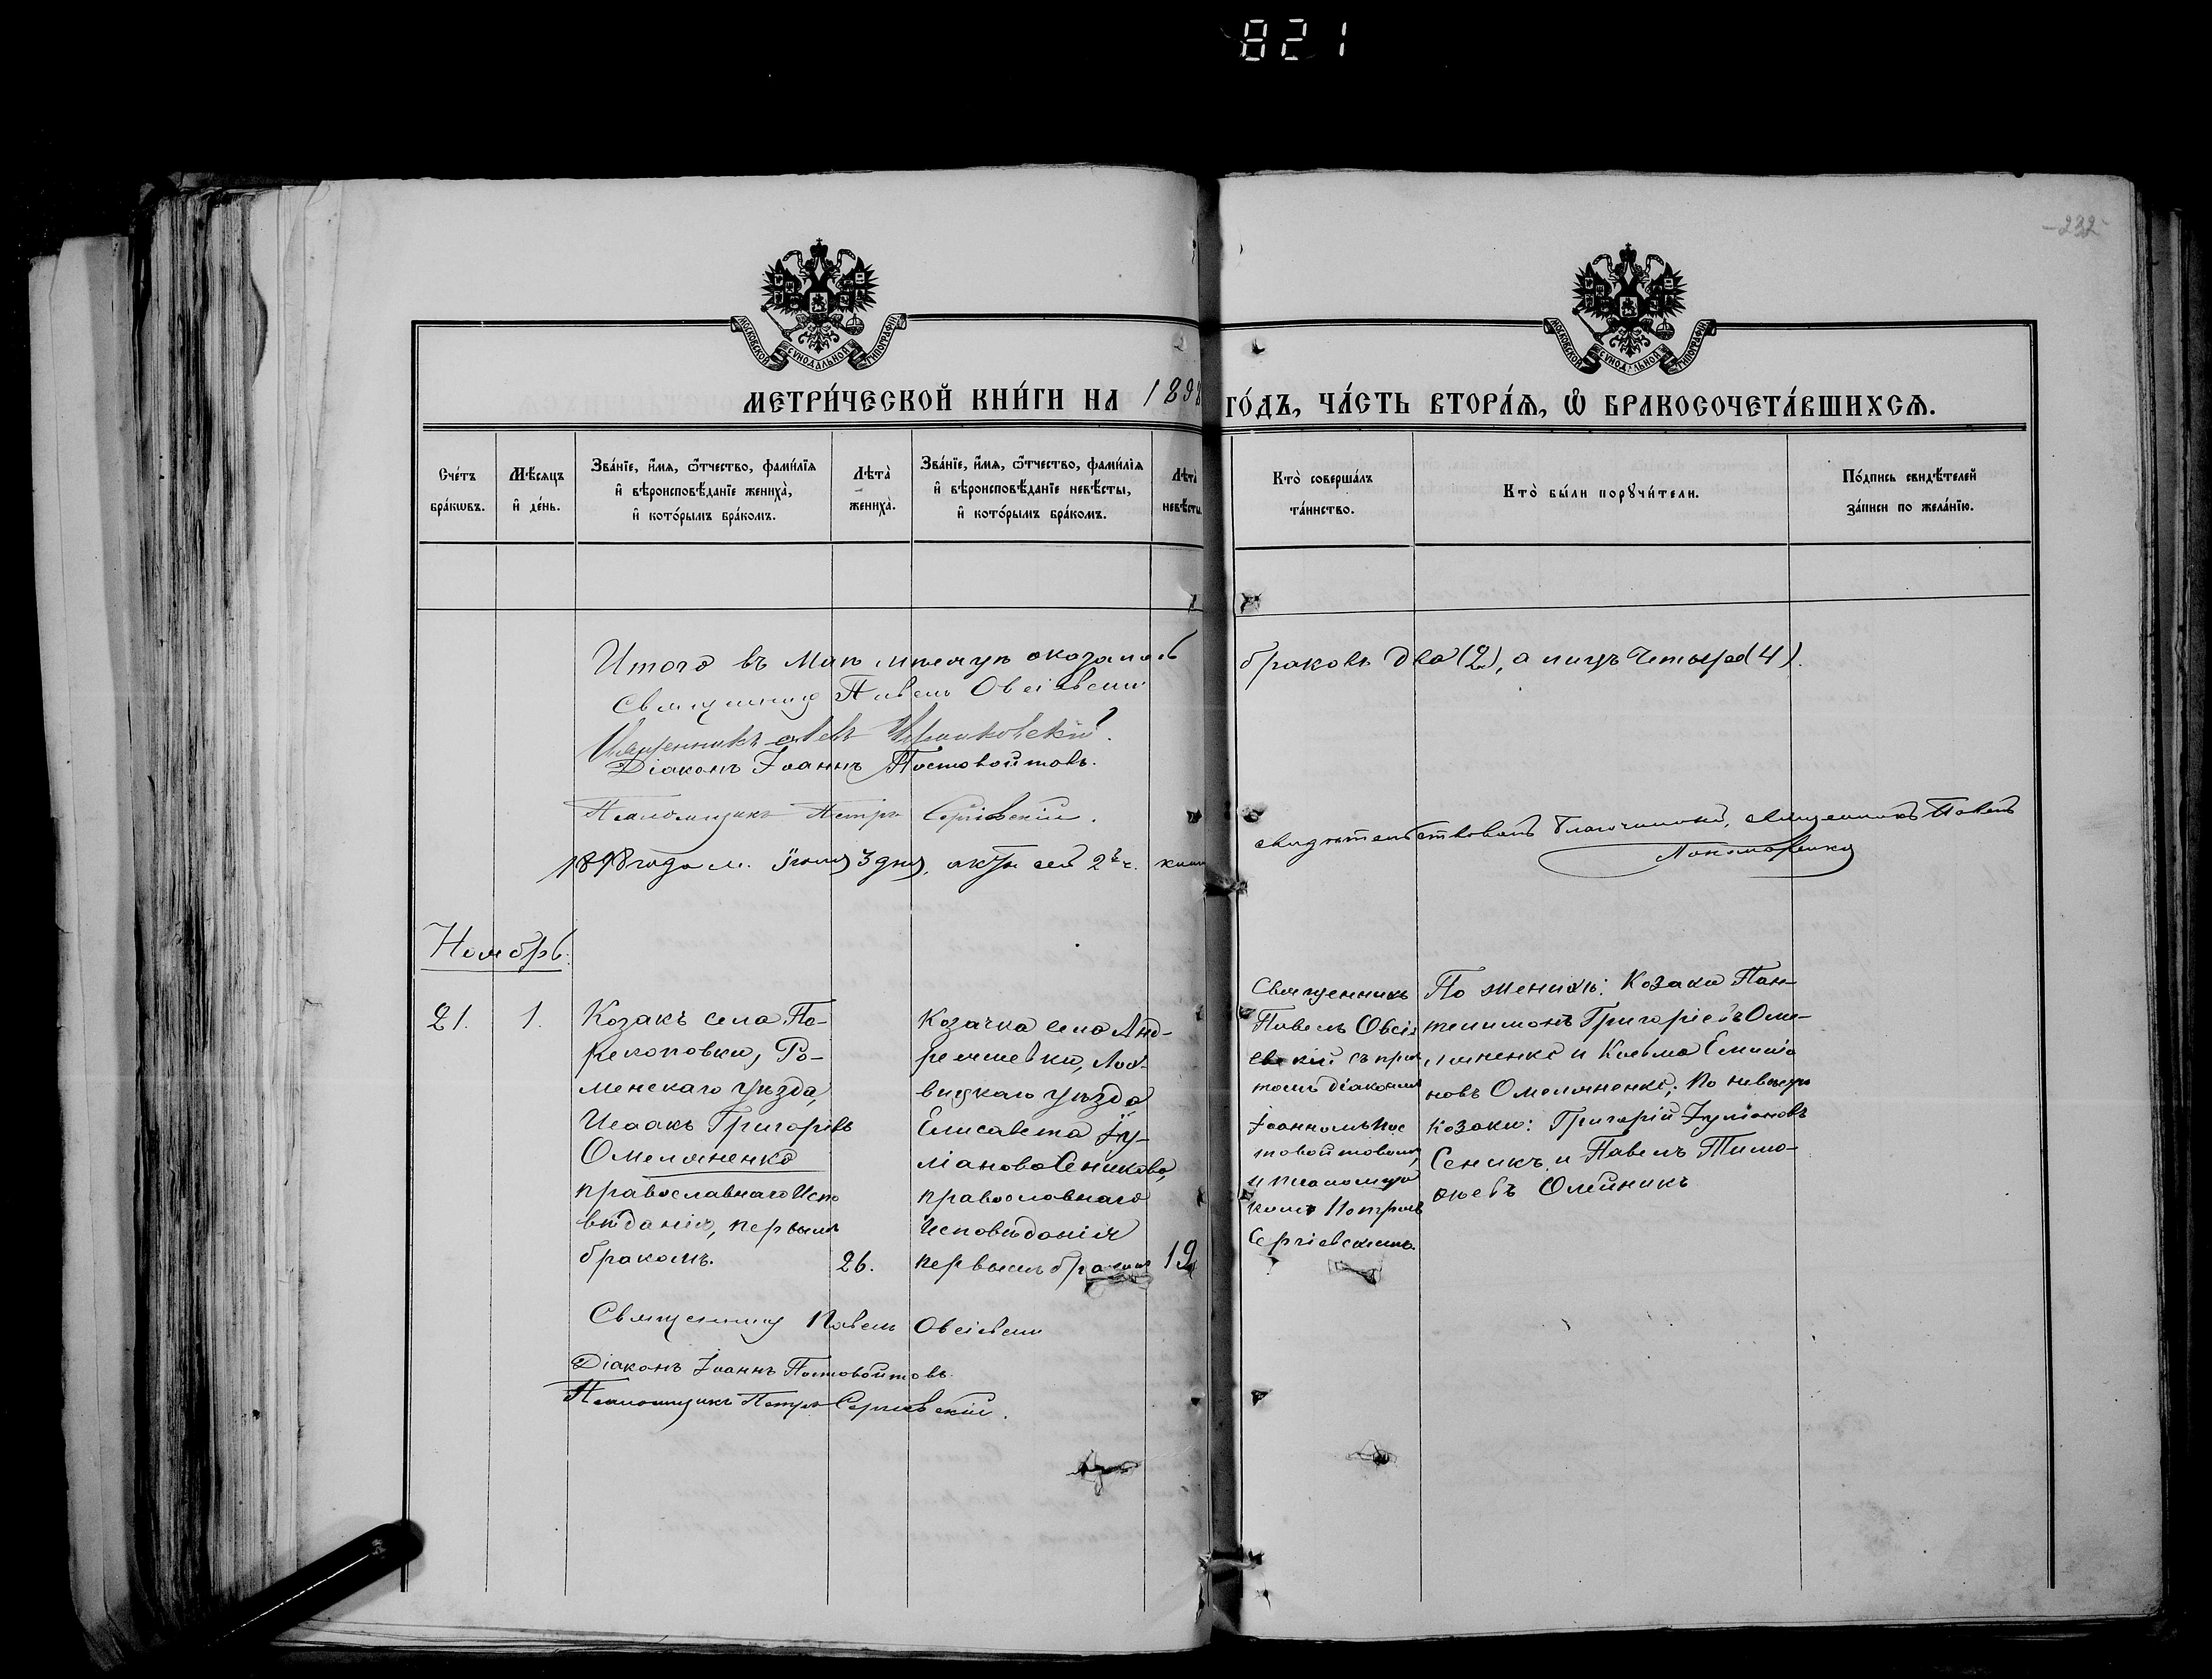 821
232
МОСКОВСКОЙ СѴНОДАЛЬНОЙ ТИПОГРАФІИ
МОСКОВСКОЙ СѴНОДАЛЬНОЙ ТИПОГРАФІИ
МЕТРИ́ЧЕСКОЙ КНИ́ГИ НА 1898 ГО́ДЪ, ЧА́СТЬ ВТОРА́Ѧ, Ѿ БРАКОСОЧЕТА́ВШИХСѦ.
Сче́тъ
бра́кѡвъ.
Мѣ́сѧцъ
и҆ де́нь.
Зва́нїе, и҆́мѧ, ѻ҆́тчество, фами́лїѧ
и҆ вѣроисповѣ́данїе жениха̀,
и҆ кото́рымъ бра́комъ.
Лѣта̀
жениха̀.
Зва́нїе, и҆́мѧ, ѻ҆́тчество, фами́лїѧ
и҆ вѣроисповѣ́данїе невѣ́сты,
и҆ кото́рымъ бра́комъ.
Лѣта̀
невѣ́сты.
Кто̀ соверша́лъ
та́инство.
Кто̀ бы́ли порꙋчи́тели.
По́дпись свидѣ́телей
за́писи по жела́нїю.
Итого въ Маѣ мѣсяцѣ оказалось браковъ два (2), а лицъ четыре (4).
Священникъ Павелъ Овсіевскій
Священникъ
Діаконъ Іоаннъ Постовойтовъ.
Псаломщикъ Петръ Сергіевскій.
1898 года м. Іюня 3 дня, сей 2й ч. книги свидѣтельствовалъ благочинный, священникъ Павелъ
Пономаренко
Ноябрь.
21.
1.
Козакъ села По-
рекоповки, Ро-
менскаго уѣзда,
Исаакъ Григоріевъ
Омельяненко
православнаго Испо
вѣданія, первымъ
бракомъ.
26.
Козачка села Анд-
реяшевки, Лох-
вицкаго уѣзда
Елисавета Іу-
ліанова Сеникова,
православнаго
Исповѣданія
первымъ бракомъ
19
Священникъ
Павелъ Овсіе
вскій съ прич
томъ діакономъ
Іоанномъ Пос
товойтовымъ,
и псаломщи
комъ Петромъ
Сергіевскимъ.
По женихѣ: Козаки Пан-
телимонъ Григоріевъ Оме-
льяненко и Косьма Емилiа
новъ Омельяненко; По невѣстѣ
козаки: Григорій Іуліановъ
Сеникъ и Павелъ Тимо-
ѳеевъ Олейникъ
Священникъ Павелъ Овсіевскій
Діаконъ Іоаннъ Постовойтовъ.
Псаломщикъ Петръ Сергіевскій.